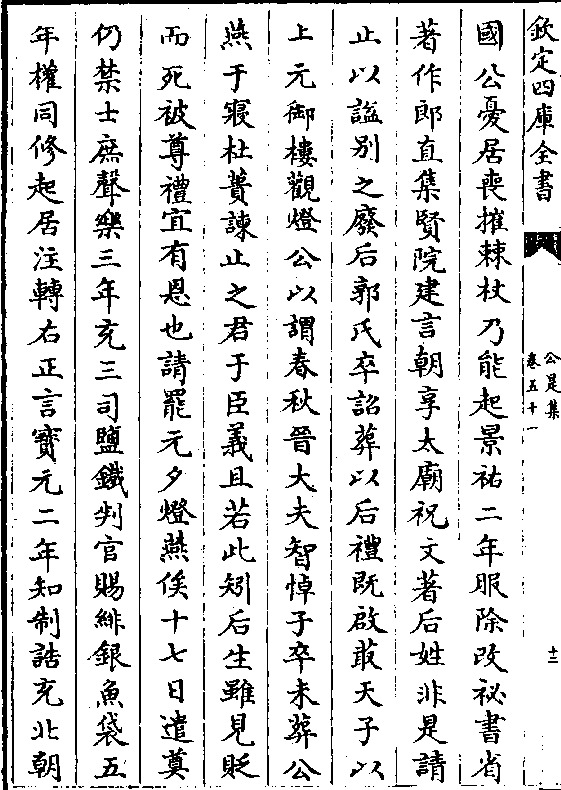 欽定四庫全書
公是集
卷五十一
十二
國公憂居喪摧棘杖乃能起景祐二年服除改祕書省
著作郎直集賢院建言朝享太廟祝文著后姓非是請
止以諡别之廢后郭氏卒詔葬以后禮既啟菆天子以
上元御樓觀燈公以謂春秋晉大夫智悼子卒未葬公
燕于寢杜蕢諫止之君于臣義且若此矧后生雖見貶
而死被尊禮宜有恩也請罷元夕燈燕俟十七日遣奠
仍禁士庶聲樂三年充三司鹽鐵判官賜緋銀魚袋五
年權同修起居注轉右正言寳元二年知制誥充北朝